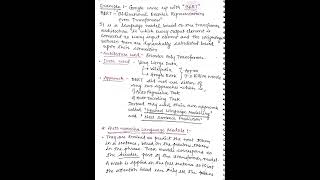 Example :- Google came up with "BERT"
BERT - Bidirectional Encoder Representations
from Transformers
It is a language model based on the transformer
architecture in which every output element is
connected to every input element and the weightings
between them are dynamically calculated based
upon their connection.
"Architecture used" - Encoder Only Transformer
Data used - Very Large Data
→ Wikipedia
→ Google Books
Approach - BERT did not use either of
any two approaches which is
Auto Regressive Task
Auto Encoding Task
Instead they used their own approach
called "Masked Language Modelling"
and "Next Sentence Prediction"
Autoregressive Language Models :-
→ They are trained to predict the next token
in a sentence, based on the previous tokens
in the phrase. These models correspond to
the decoder part of the transformer model
A mask is applied on the full sentence so that
the attention head can only see the tokens